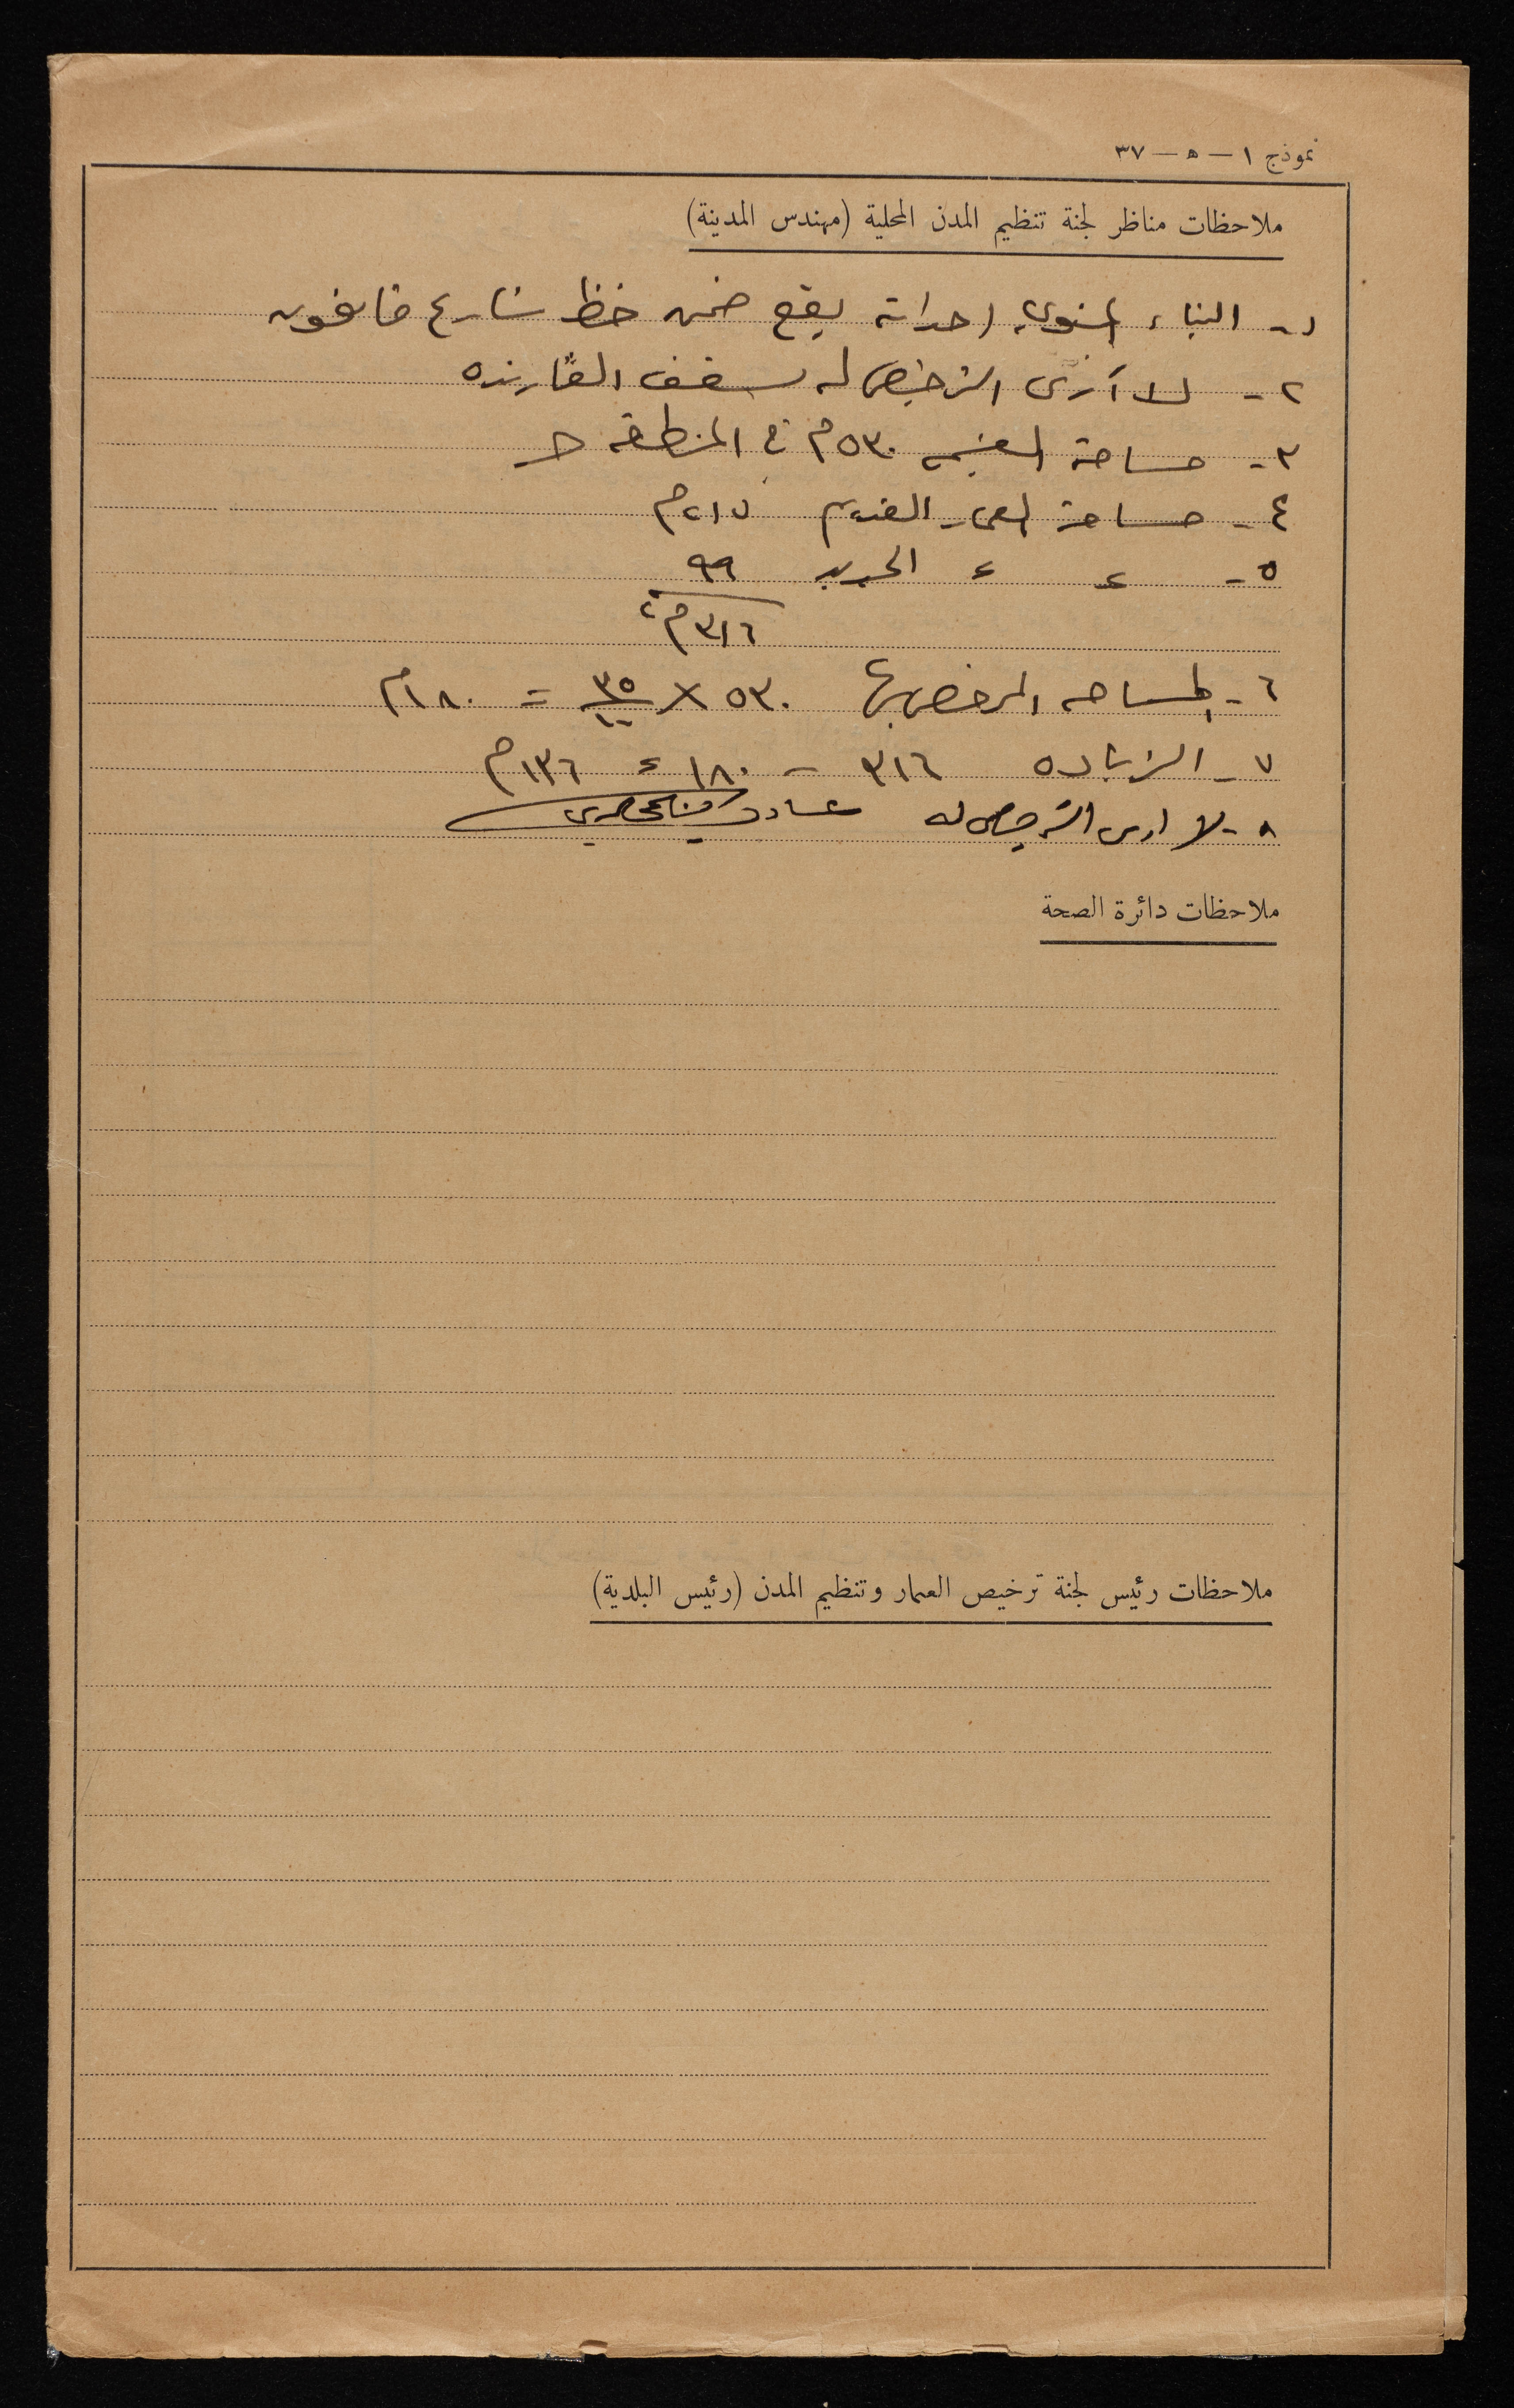 نموذج ١ — ٥ — ٣٧
ملاحظات مناظر لجنة تنظيم المدن المحلية (مهندس المدينة)
١- البناء المنوي احداثه يقع ضمن خط شارع قانون
٢- لا أرى الترخيص له سقف الڤارنده
٣- مساحة القسيمه ٥٣٠م في المنطقه حـ
٤- مساحة العمار القديم ٢١٧م
٥- ء ء الجديد ٩٩
٣١٦م٢
٦- المساحه المرخص بها ٥٣٠ × ٣٥/١٠٠ = ١٨٠م
٧- الزياده ٣١٦ - ١٨٠ = ١٣٦م
٨- لا ارى الترخيص له
ملاحظات دائرة الصحة
ملاحظات رئيس لجنة ترخيص العمار وتنظيم المدن (رئيس البلدية)